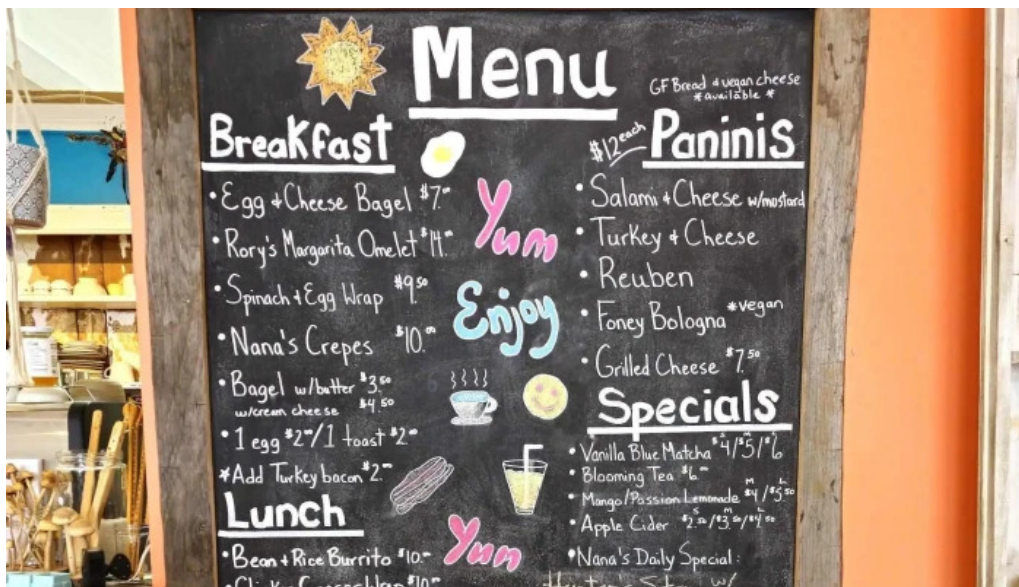 Menu
GF Bread & vegan cheese
*available*
Breakfast
• Egg & Cheese Bagel $7.00
• Rory's Margarita Omelet $14.00
• Spinach & Egg Wrap $9.50
• Nana's Crepes $10.00
• Bagel w/butter $3.50
w/cream cheese $4.50
• 1 egg $2.00/1 toast $2.00
*Add Turkey bacon $2.00
Lunch
• Bean & Rice Burrito $10.00
Yum
Enjoy
Yum
$12 each Paninis
• Salami & Cheese w/mustard
• Turkey & Cheese
• Reuben
• Foney Bologna *vegan
• Grilled Cheese $7.50
Specials
• Vanilla Blue Matcha $4/$5/$6
• Blooming Tea $6.00
• Mango/Passion Lemonade M $4/L $5.50
• Apple Cider S $2.50/M $3.50/L $4.50
• Nana's Daily Special:
w/